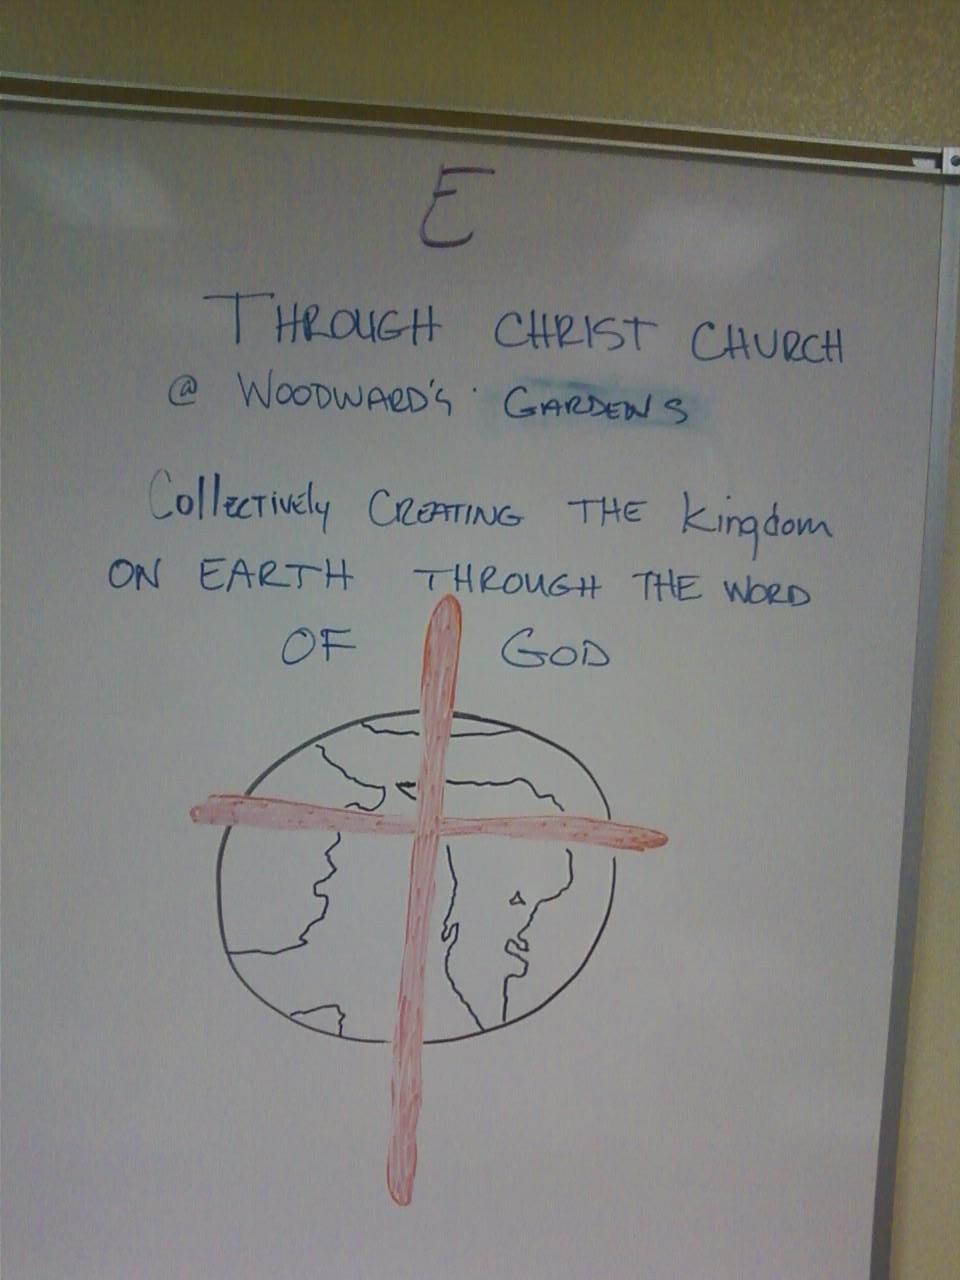 E
THROUGH CHRIST CHURCH
@ WOODWARD'S GARDENS
Collectively CREATING THE kingdom
ON EARTH THROUGH THE WORD
OF GOD